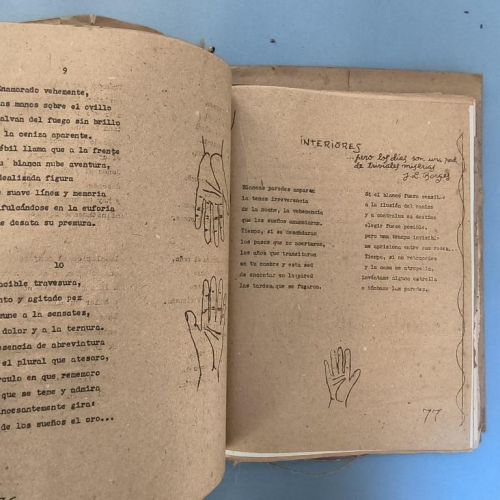 9
Enamorado vehemente,
as manos sobre el ovillo
alvan del fuego sin brillo
la ceniza aparente.
ébil llama que a la frente
u blanca nube aventura,
dealizada figura
e suave línea y memoria
fulcándose en la euforia
e desata su premura.
10
ncible travesura,
nto y agitado pez
mune a la sensatez,
dolor y a la ternura.
esencia de abreviatura
el plural que atesoro,
culo en que rememoro
que se teme y admira
ncesantemente gira:
de los sueños el oro...
INTERIORES
...pero los días son una red
de triviales miserias
J.L. Borges
Blancas paredes amparan
la tensa irreverencia
de la noche, la vehemencia
que los sueños enmascaran.
Tiempo, si se desandaran
los pasos que no acertaron,
los años que transitaron
en tu nombre y esta sed
de encontrar en la pared
las tardes que se fugaron.
Si el blanco fuera sensible
a la ilusión del vacío
y a contraluz su destino
elegir fuese posible,
pero una trampa invisible
me aprisiona entre sus redes.
Tiempo, si no retrocedes
y la casa se atropella,
invéntame alguna estrella
o bórrame las paredes.
77